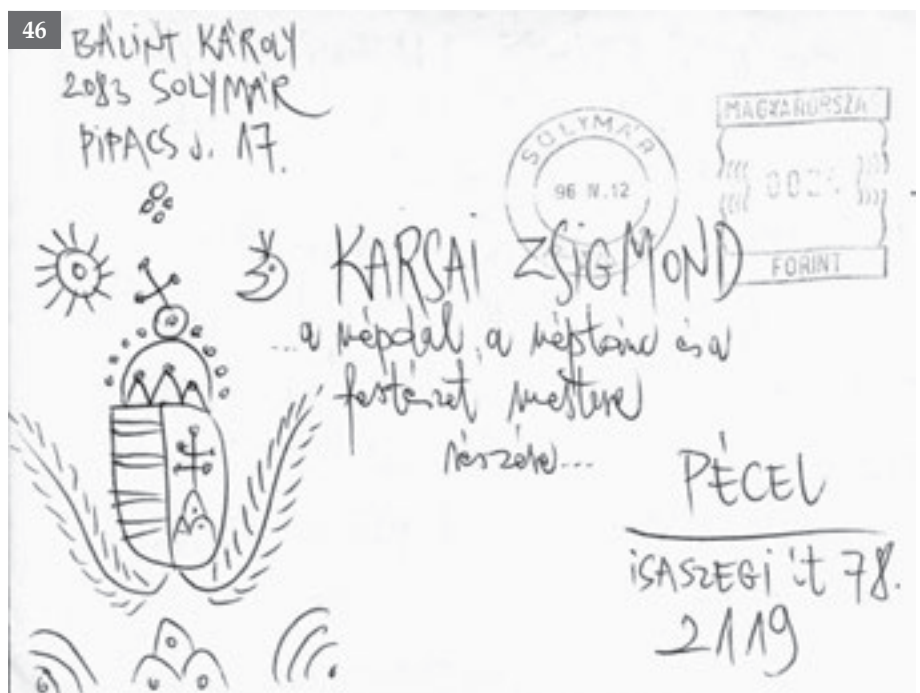 46
BÁLINT KÁROLY
2083 SOLYMÁR
PIPACS u. 17.
SOLYMÁR
96 IV.12
MAGYARORSZÁ
FORINT
KARSAI ZSIGMOND
...a népdal, a néptánc és a
festészet mestere
részére...
PÉCEL
ISASZEGI út 78.
2119